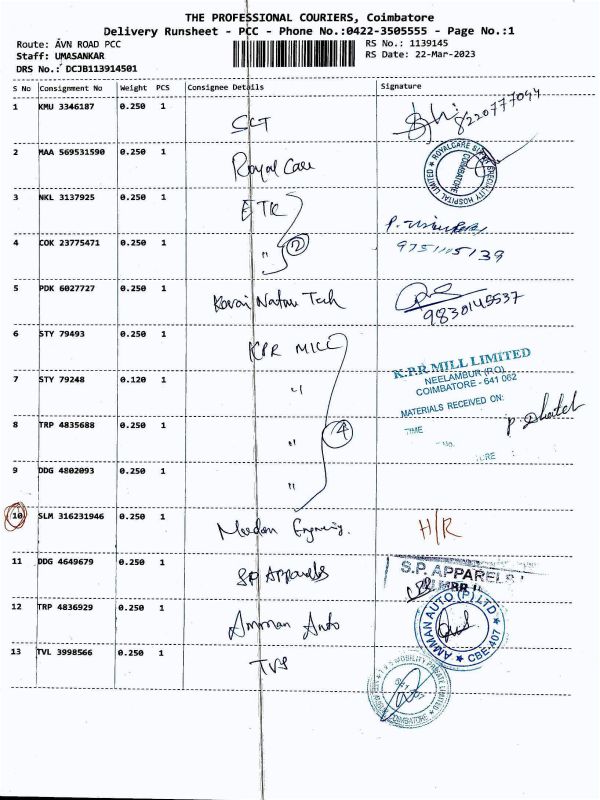 THE PROFESSIONAL COURIERS, Coimbatore
Delivery Runsheet - PCC - Phone No.:0422-3505555 - Page No.:1
Route: AVN ROAD PCC
Staff: UMASANKAR
DRS No.: DCJB113914501
RS No.: 1139145
RS Date: 22-Mar-2023
S No Consignment No Weight PCS Consignee Details Signature
1 KMU 3346187 0.250 1 SCT 8220777094
2 MAA 569531590 0.250 1 Royal Care ROYALCARE SUPER SPECIALITY HOSPITAL LIMITED COIMBATORE
3 NKL 3137925 0.250 1 ETK
4 COK 23775471 0.250 1 " 2 9751105139
5 PDK 6027727 0.250 1 Kovai Natur Tech 9830145537
6 STY 79493 0.250 1 KPR MILL K.P.R MILL LIMITED
NEELAMBUR (RO)
COIMBATORE - 641 062
7 STY 79248 0.120 1 " MATERIALS RECEIVED ON:
8 TRP 4835688 0.250 1 " 4 TIME
No.
9 DDG 4802093 0.250 1 "
10 SLM 316231946 0.250 1 H/R
11 DDG 4649679 0.250 1 SP Apparels S.P. APPARELS
12 TRP 4836929 0.250 1 Amman Auto AMMAN AUTO (P) LTD CBE-407
13 TVL 3998566 0.250 1 TVS MOBILITY PRIVATE LIMITED COIMBATORE